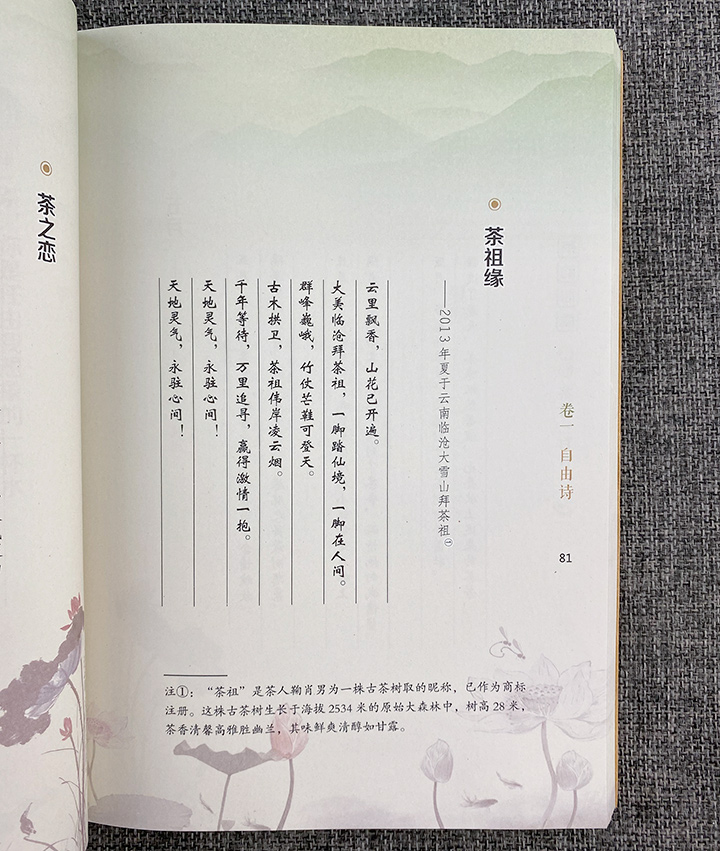 卷一 自由诗
81
茶祖缘
——2013年夏于云南临沧大雪山拜茶祖①
云里飘香，山花已开遍。
大美临沧拜茶祖，一脚踏仙境，一脚在人间。
群峰巍峨，竹仗芒鞋可登天。
古木拱卫，茶祖伟岸凌云烟。
千年等待，万里追寻，赢得激情一抱。
天地灵气，永驻心间！
天地灵气，永驻心间！
注①：“茶祖”是茶人鞠肖男为一株古茶树取的昵称，已作为商标
注册。这株古茶树生长于海拔2534米的原始大森林中，树高28米，
茶香清馨高雅胜幽兰，其味鲜爽清醇如甘露。
茶之恋